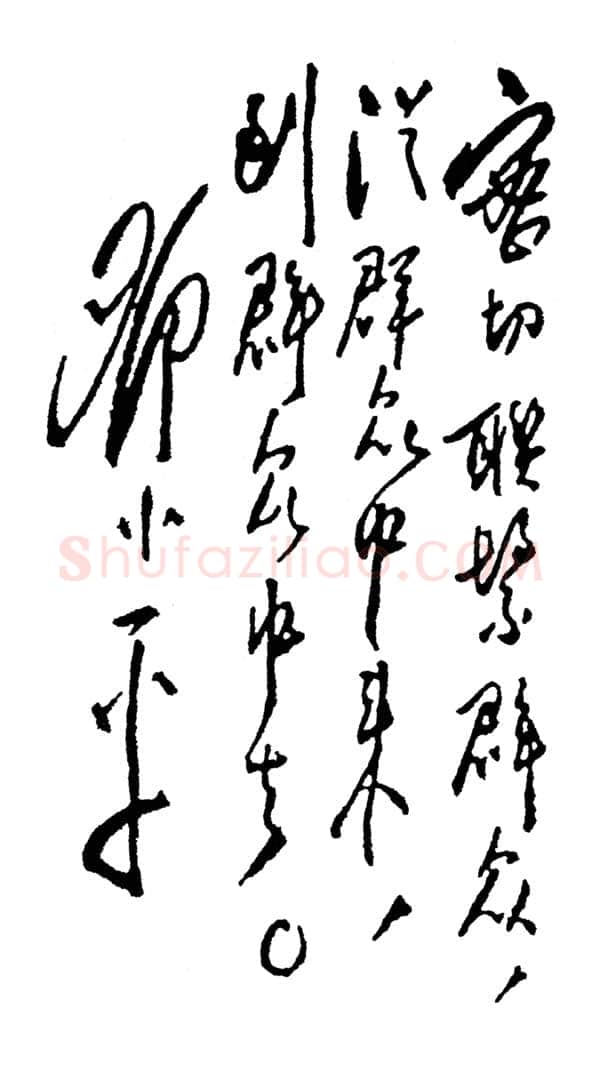 密切联繫群众，
从群众中来，
到群众中去。
邓小平
Shufaziliao.COM